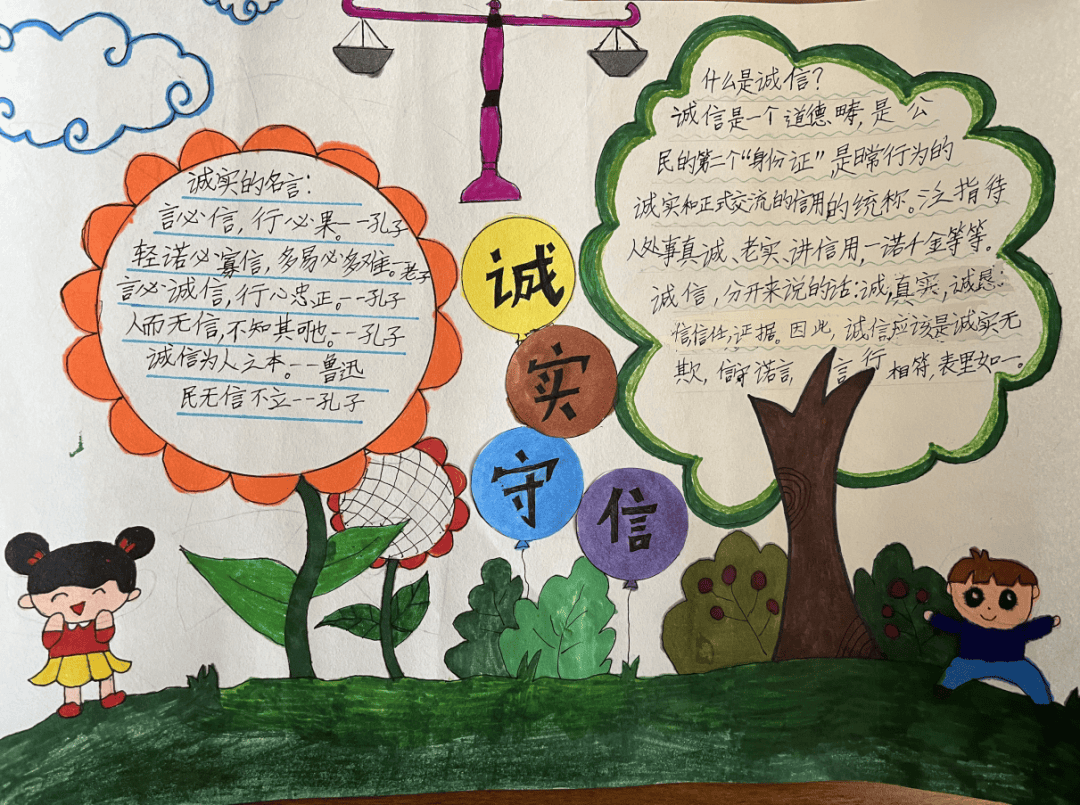 诚实的名言：
言必信，行必果。--孔子
轻诺必寡信，多易必多难。--老子
言必诚信，行必忠正。--孔子
人而无信，不知其可也。--孔子
诚信为人之本。--鲁迅
民无信不立--孔子
诚
实
守
信
什么是诚信？
诚信是一个道德畴，是公
民的第二个“身份证”，是日常行为的
诚实和正式交流的信用的统称。泛指待
人处事真诚、老实、讲信用，一诺千金等等。
诚信，分开来说的话：诚，真实，诚恳：
信信任，证据。因此，诚信应该是诚实无
欺，信守诺言，言行相符，表里如一。